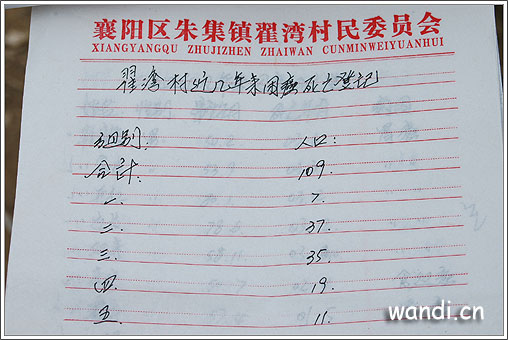 襄阳区朱集镇翟湾村民委员会
XIANGYANGQU ZHUJIZHEN ZHAIWAN CUNMINWEIYUANHUI
翟湾村近几年来因癌死亡登记
组别: 人口:
合计: 109.
一. 7.
二. 37.
三. 35.
四. 19.
五. 11.
wandi.cn